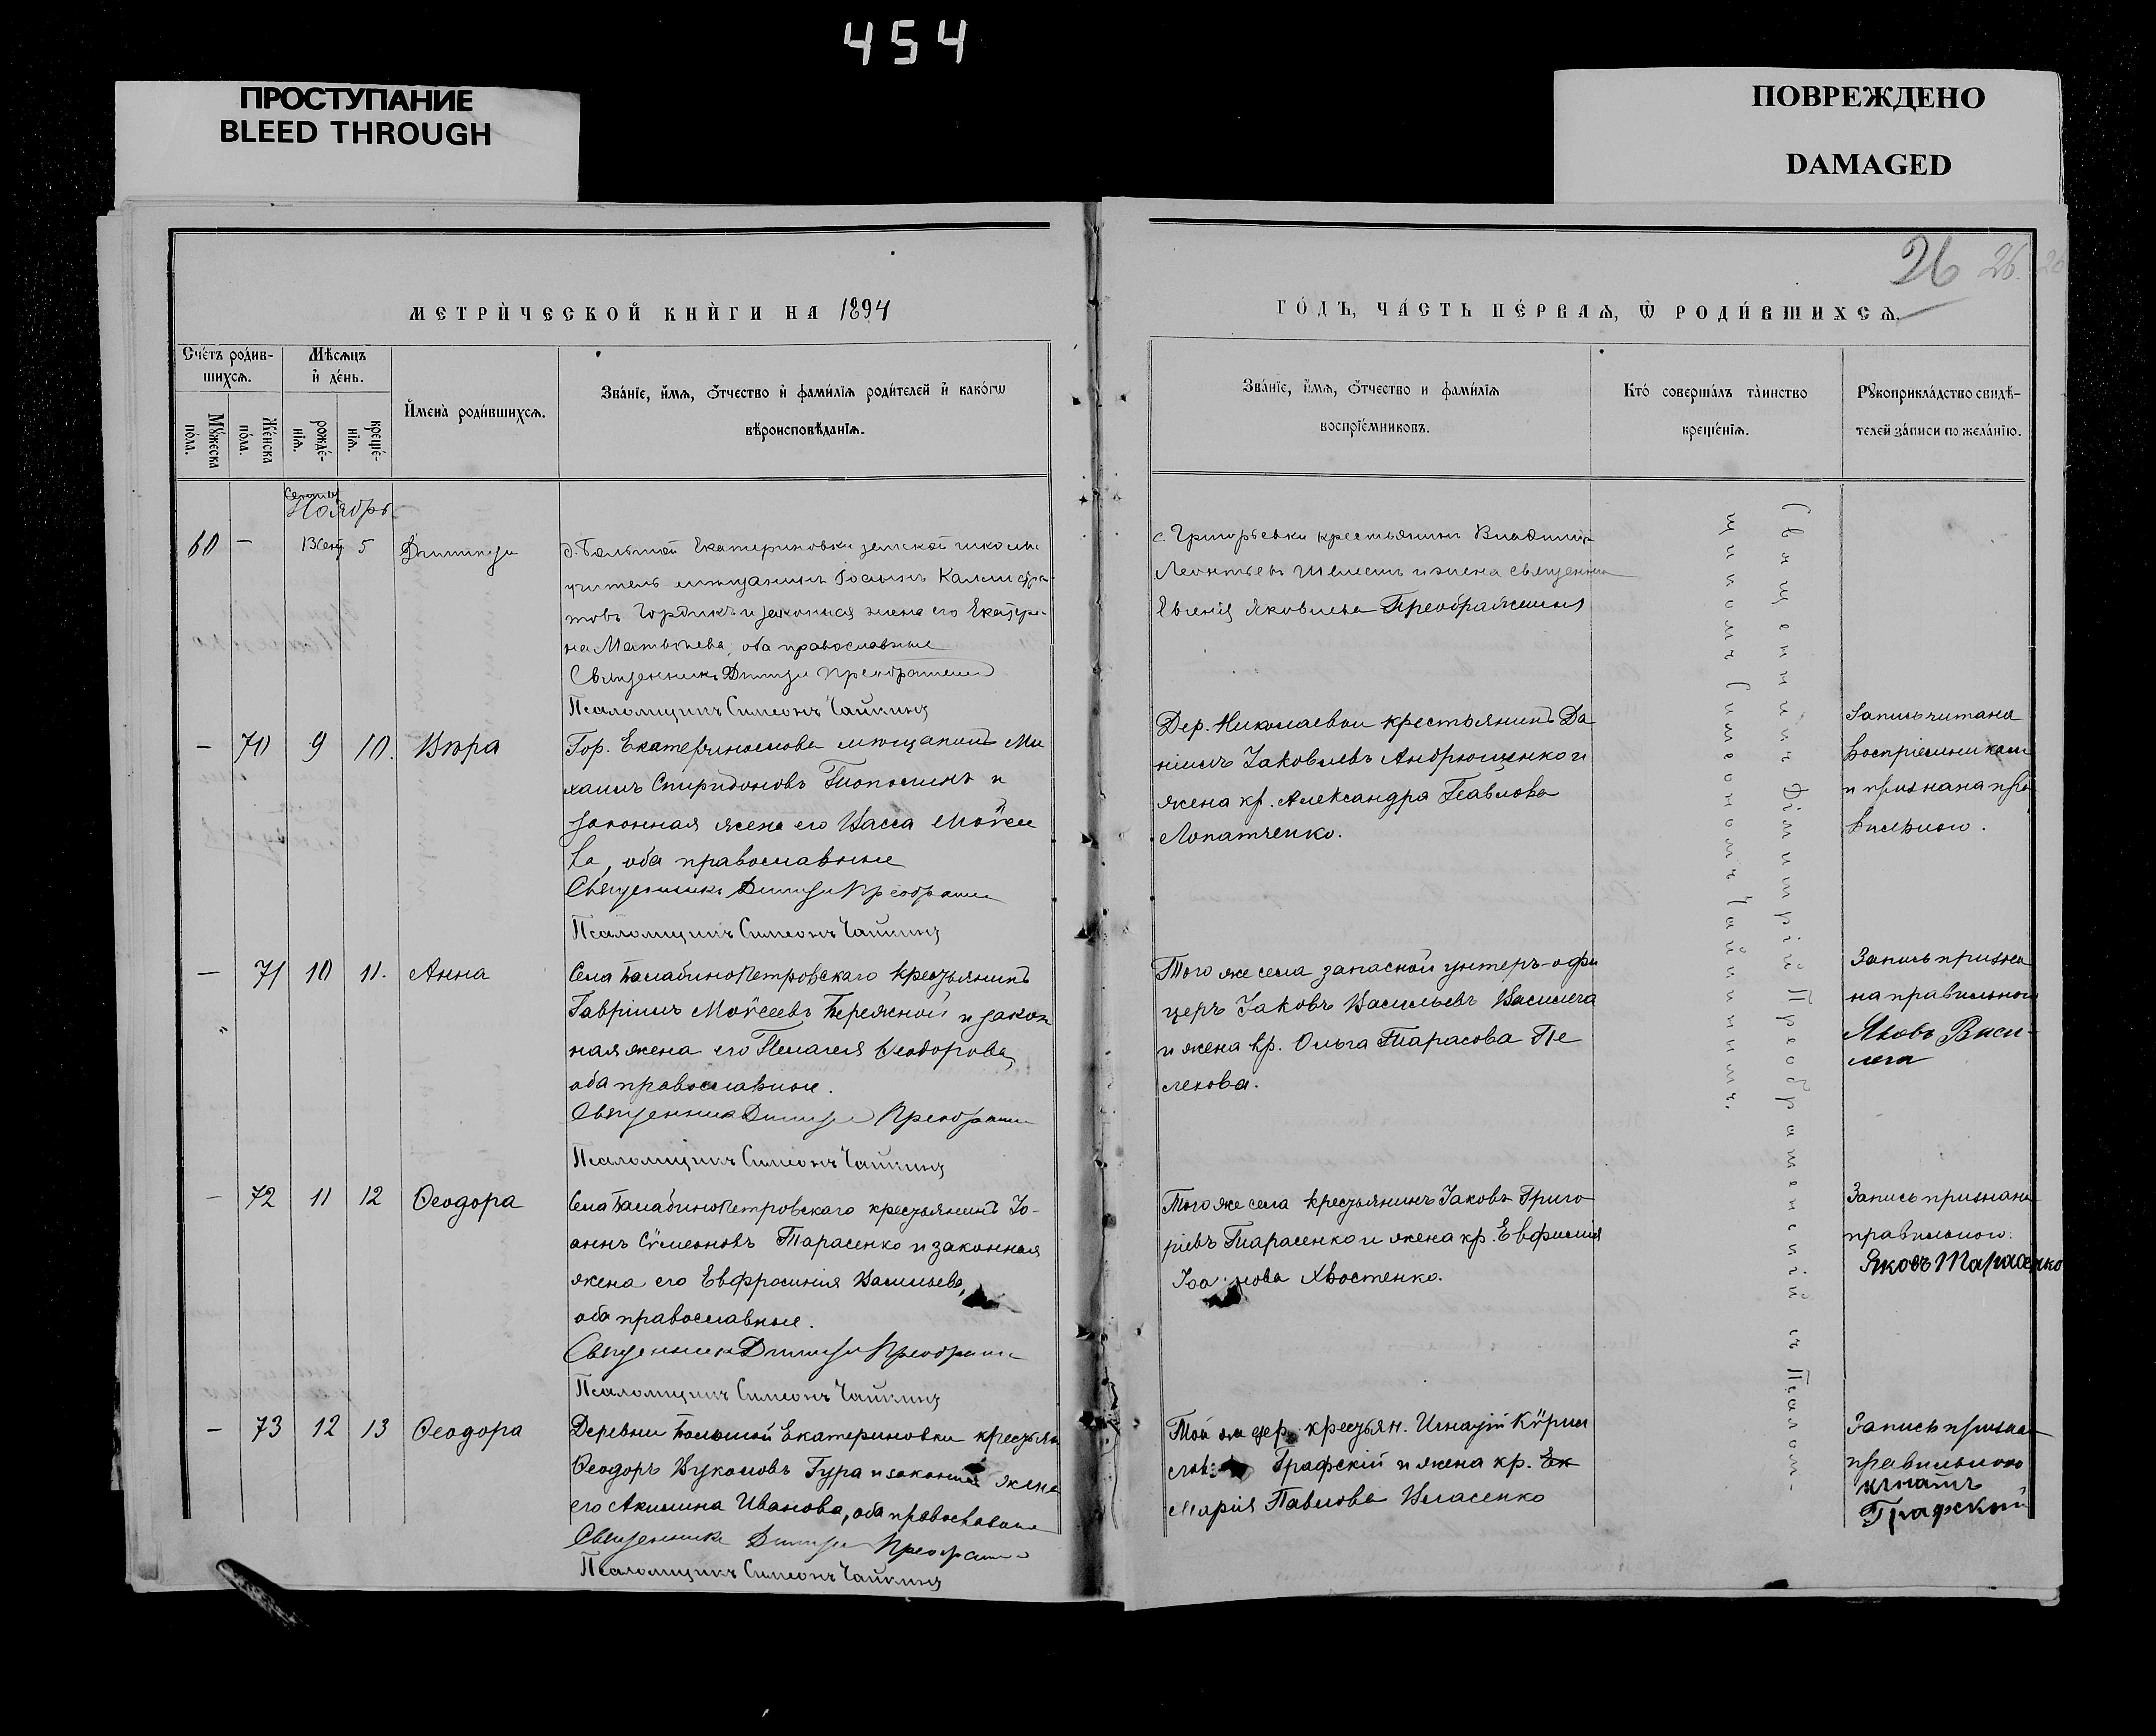 454
ПРОСТУПАНИЕ
BLEED THROUGH
ПОВРЕЖДЕНО
DAMAGED
26 26. 26
МЕТРИ́ЧЕСКОЙ КНИ́ГИ НА 1894
ГО́ДЪ, ЧА́СТЬ ПЕ́РВАѦ, Ѡ РОДИ́ВШИХСѦ.
Сче́тъ роди́в-
шихсѧ.
Мѣ́сѧцъ
и де́нь.
Имена̀ роди́вшихсѧ.
Зва́нїе, и́мѧ, о́тчество и фами́лїѧ роди́телей и како́гѡ
вѣроисповѣ́данїѧ.
Зва́нїе, и́мѧ, о́тчество и фами́лїѧ
воспрїе́мниковъ.
Кто́ соверша́лъ та́инство
креще́нїѧ.
Рꙋкоприкла́дство свидѣ́-
телей за́писи по жела́нїю.
Мꙋ́жеска
по́ла.
Же́нска
по́ла.
рожде́-
нїѧ.
креще́-
нїѧ.
Ноябрь
60 — 13 Сент. 5 Димитрій
д. Большой Екатериновки земской школы
учитель мѣщанинъ
и законная жена его Екатери-
на Матвѣева, оба православные
Священникъ Димитрій Преображенскій
Псаломщикъ Симеонъ Чайкинъ
с. Григорьевки крестьянинъ Владиміръ
Леонтьевъ Шелестъ и жена священника
Евгенія Яковлева Преображенская
— 70 9 10. Вѣра
Гор. Екатеринослава мѣщанинъ Ми
хаилъ Спиридоновъ Тополинъ и
законная жена его Васса Моѵсее
ва, оба православные
Священникъ Димитрій Преображен
Псаломщикъ Симеонъ Чайкинъ
Дер. Николаевки крестьянинъ Да
ніилъ Іаковлевъ Андрющенко и
жена кр. Александра Павлова
Лопатченко.
Запись читана
воспріемникам
и признана пра
вильною.
— 71 10 11. Анна
Села БалабиноПетровскаго крестьянинъ
Гавріилъ Моѵсеевъ Бережной и закон
ная жена его Пелагея Ѳеодорова,
оба православные.
Священникъ Димитрій Преображен
Псаломщикъ Симеонъ Чайкинъ
Того же села запасной унтеръ-офи
церъ Іаковъ Васильевъ Василега
и жена кр. Ольга Тарасова Пе
лехова.
Запись призна
на правильною
Яковъ Васи-
лега
— 72 11 12 Ѳеодора
Села БалабиноПетровскаго крестьянинъ Іо-
аннъ Сѵмеоновъ Тарасенко и законная
жена его Евфросинія Васильева,
оба православные.
Священникъ Димитрій Преображен
Псаломщикъ Симеонъ Чайкинъ
Того же села крестьянинъ Іаковъ Григо
ріевъ Тарасенко и жена кр. Евфимія
Іоа нова Хвостенко.
Запись признана
правильною.
Яковъ Тарасенко
— 73 12 13 Ѳеодора
Деревни Большой Екатериновки крестьян
Ѳеодоръ Вуколовъ Гура и законная жена
его Акилина Иванова, оба православные
Священникъ Димитрій Преображен
Псаломщикъ Симеонъ Чайкинъ
Той же дер. крестьян. Игнатій Кѵрил
лов Графскій и жена кр. Ек
Марія Павлова Власенко
Запись признана
правильною
Игнатъ
Графский
Священникъ Димитрій Преображенскій съ Псалом-
щикомъ Симеономъ Чайкинымъ.